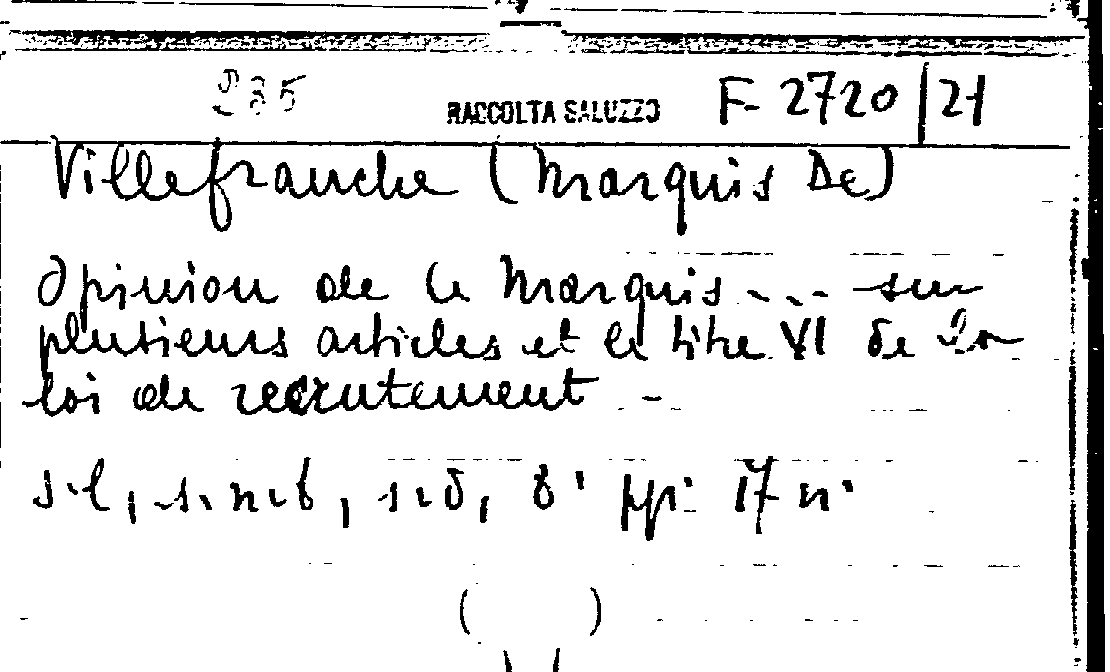 235 RACCOLTA SALUZZO F. 2720/21
Villefranche (Marquis De)
Opinion de le Marquis ... sur
plusieurs articles et le titre VI de la
loi de recrutement -
s.l, s.n.t, s.d, 8° pp. 17 n.
( )